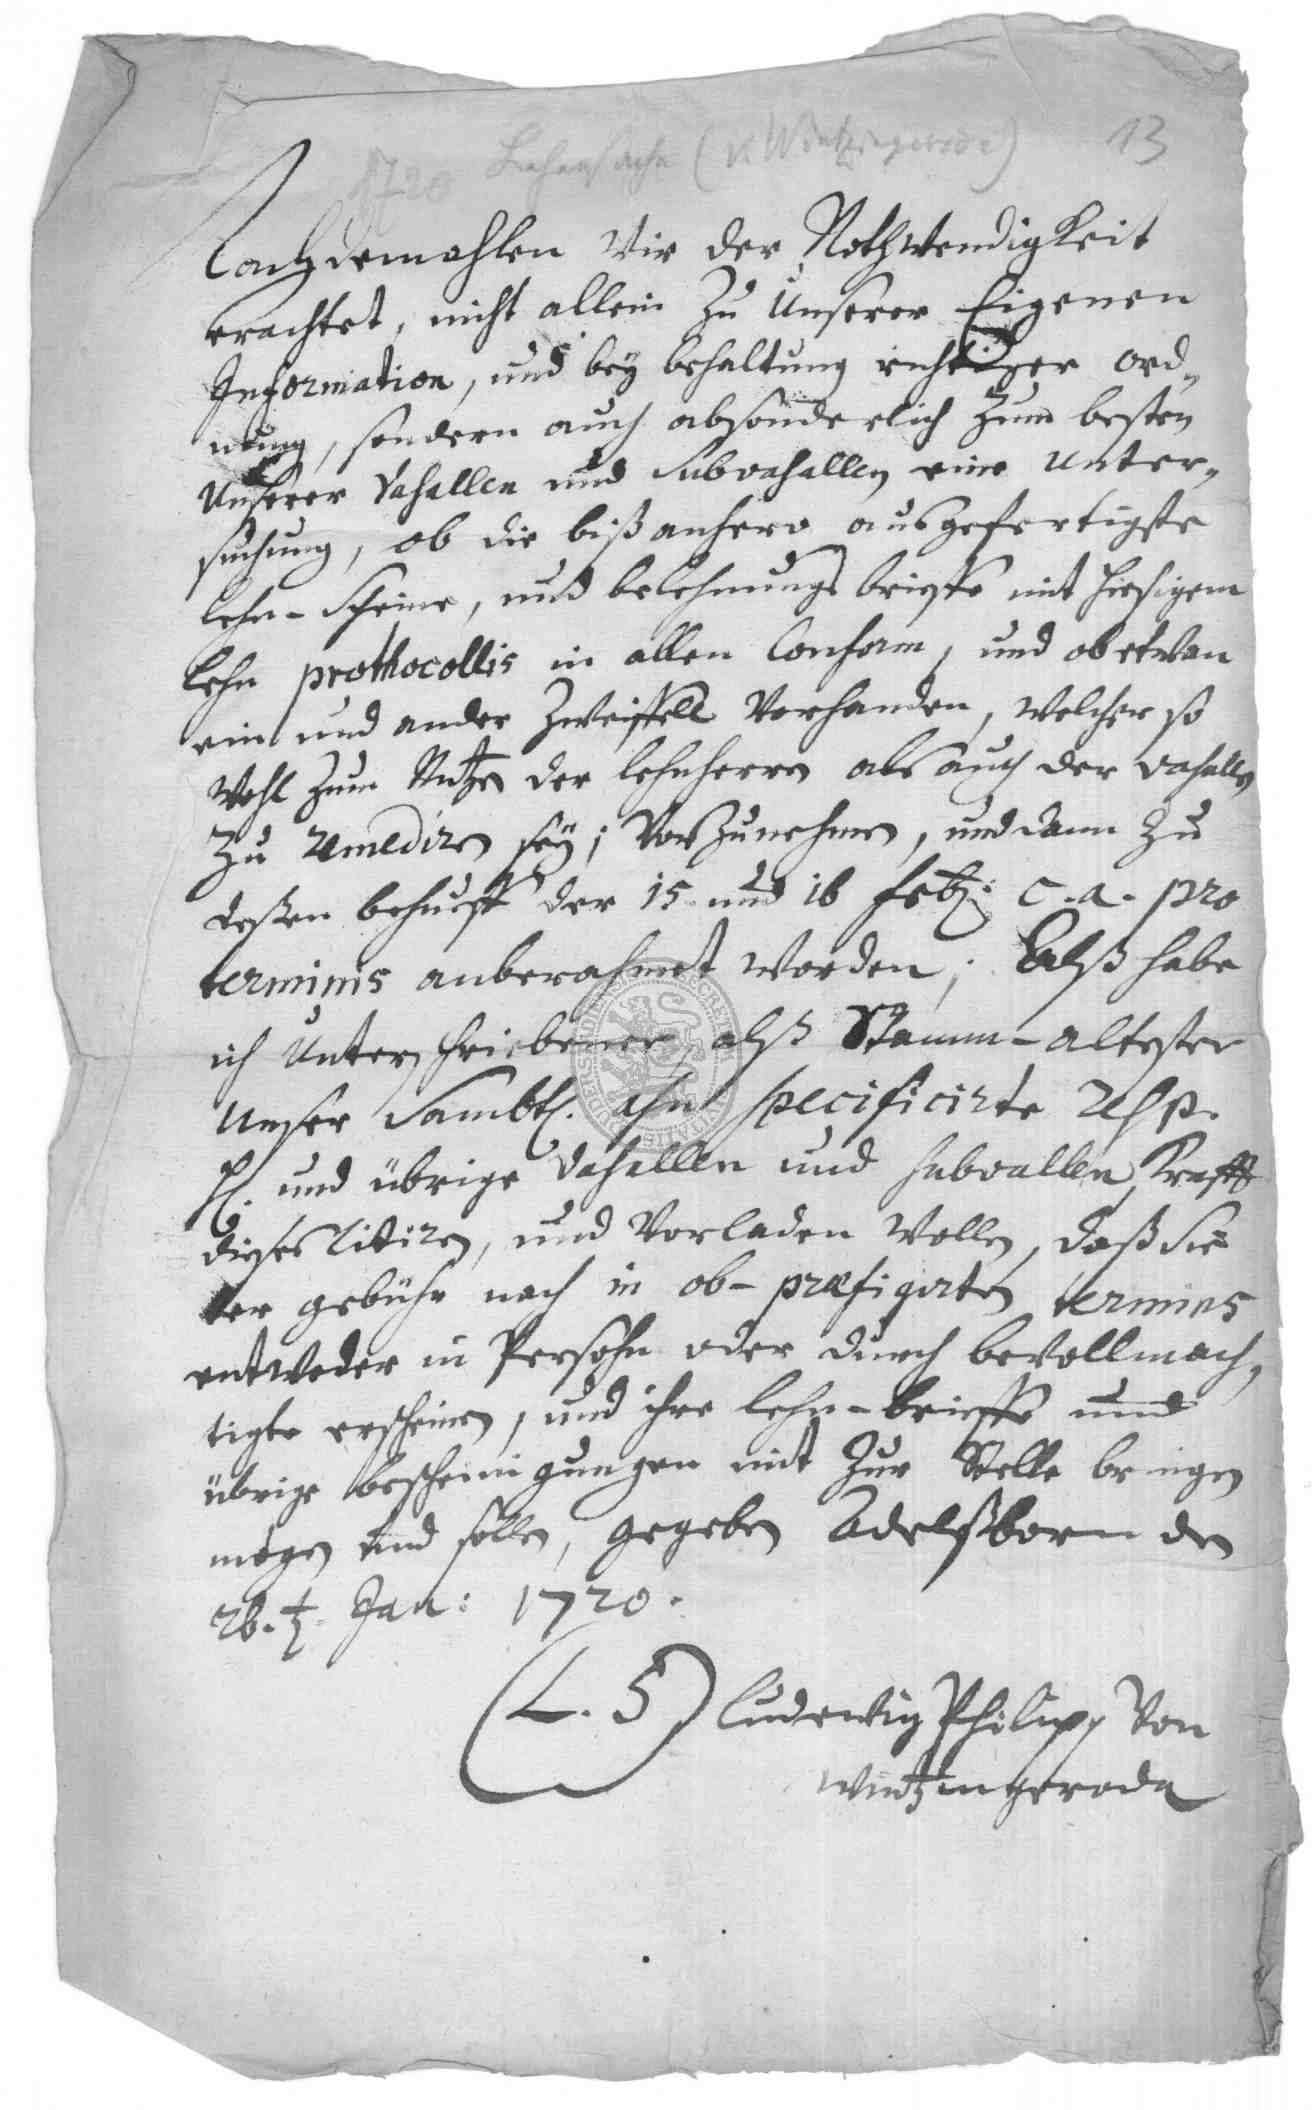 1720 Lehensache (v. Wintzingerode) 13
Nachdemahlen Wir der Nothwendigkeit
erachtet, nicht allein zu Unserer Eigenen
Information, und beybehaltung richtiger ord„
nung, sondern auch absonderlich zum besten
Unserer Vasallen und Subvasallen eine Unter„
suchung, ob die bißanhero ausgefertigte
lehn-Scheine, und belehnungs brieffe mit hiesigem
Lehn prothocollis in allen Conform, und ob etwan
ein und ander Zweiffell Vorhanden, welcher so
Wohl zum Nutzen der lehnherren als auch der Vasallen
zu remediren sey; Vorzunehmen, und dann zu
deßen behueff der 15. und 16 febr: c. a. pro
terminis anberahmet worden; Alß habe
ich Unterschriebener, alß Stamm-altester
Unser Sambtl. specificirte
und übrige Vasallen und subvallen, Krafft
dieses Citiren, und Vorladen wollen, daß Sie
der gebühr nach in ob-præfigirten terminis
entweder in Persohn oder durch bevollmach„
tigte erscheinen, und ihre lehn-brieffe und
übrige bescheinigungen mit zur Stelle bringen
mögen und sollen, gegeben Adelßborn den
26. t. Jan: 1720.
(L. S) Ludewig Philipp Von
Wintzingeroda